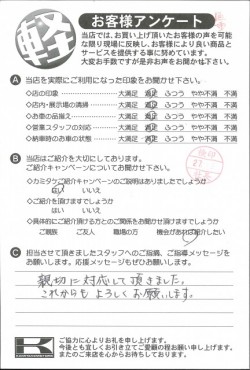 軽
お客様アンケート
当店では、お買い上げ頂いたお客様の声を可能
な限り現場に反映し、お客様により良い商品と
サービスを提供する事に努めています。
大変お手数ですが是非お声をお聞かせ下さい。
A 当店を実際にご利用になった印象をお聞かせ下さい。
◇店の印象 大満足 満足 ふつう やや不満 不満
◇店内・展示場の清掃 大満足 満足 ふつう やや不満 不満
◇お車の品揃え 大満足 満足 ふつう やや不満 不満
◇営業スタッフの対応 大満足 満足 ふつう やや不満 不満
◇納車時のお車の状態 大満足 満足 ふつう やや不満 不満
B 当店はご紹介を大切にしております。
ご紹介キャンペーンについてお聞かせ下さい。
◇カミタケご紹介キャンペーンのご説明はありましたでしょうか
はい いいえ
◇ご紹介を頂けますでしょうか
はい いいえ
◇具体的にご紹介頂ける方とのご関係をお聞かせ頂けますでしょうか
ご親族 ご友人 職場の方 機会があれば紹介したい
C 担当させて頂きましたスタッフへのご指摘、ご指導メッセージを
お願いします。応援メッセージもぜひお願いします。
親切に対応して頂きました。
これからもよろしくお願いします。
K
ご協力に心よりお礼を申し上げます。
今後とも宜しくお引き立てご愛顧の程お願い申し上げます。
またのご来店を心からお待ちしております。